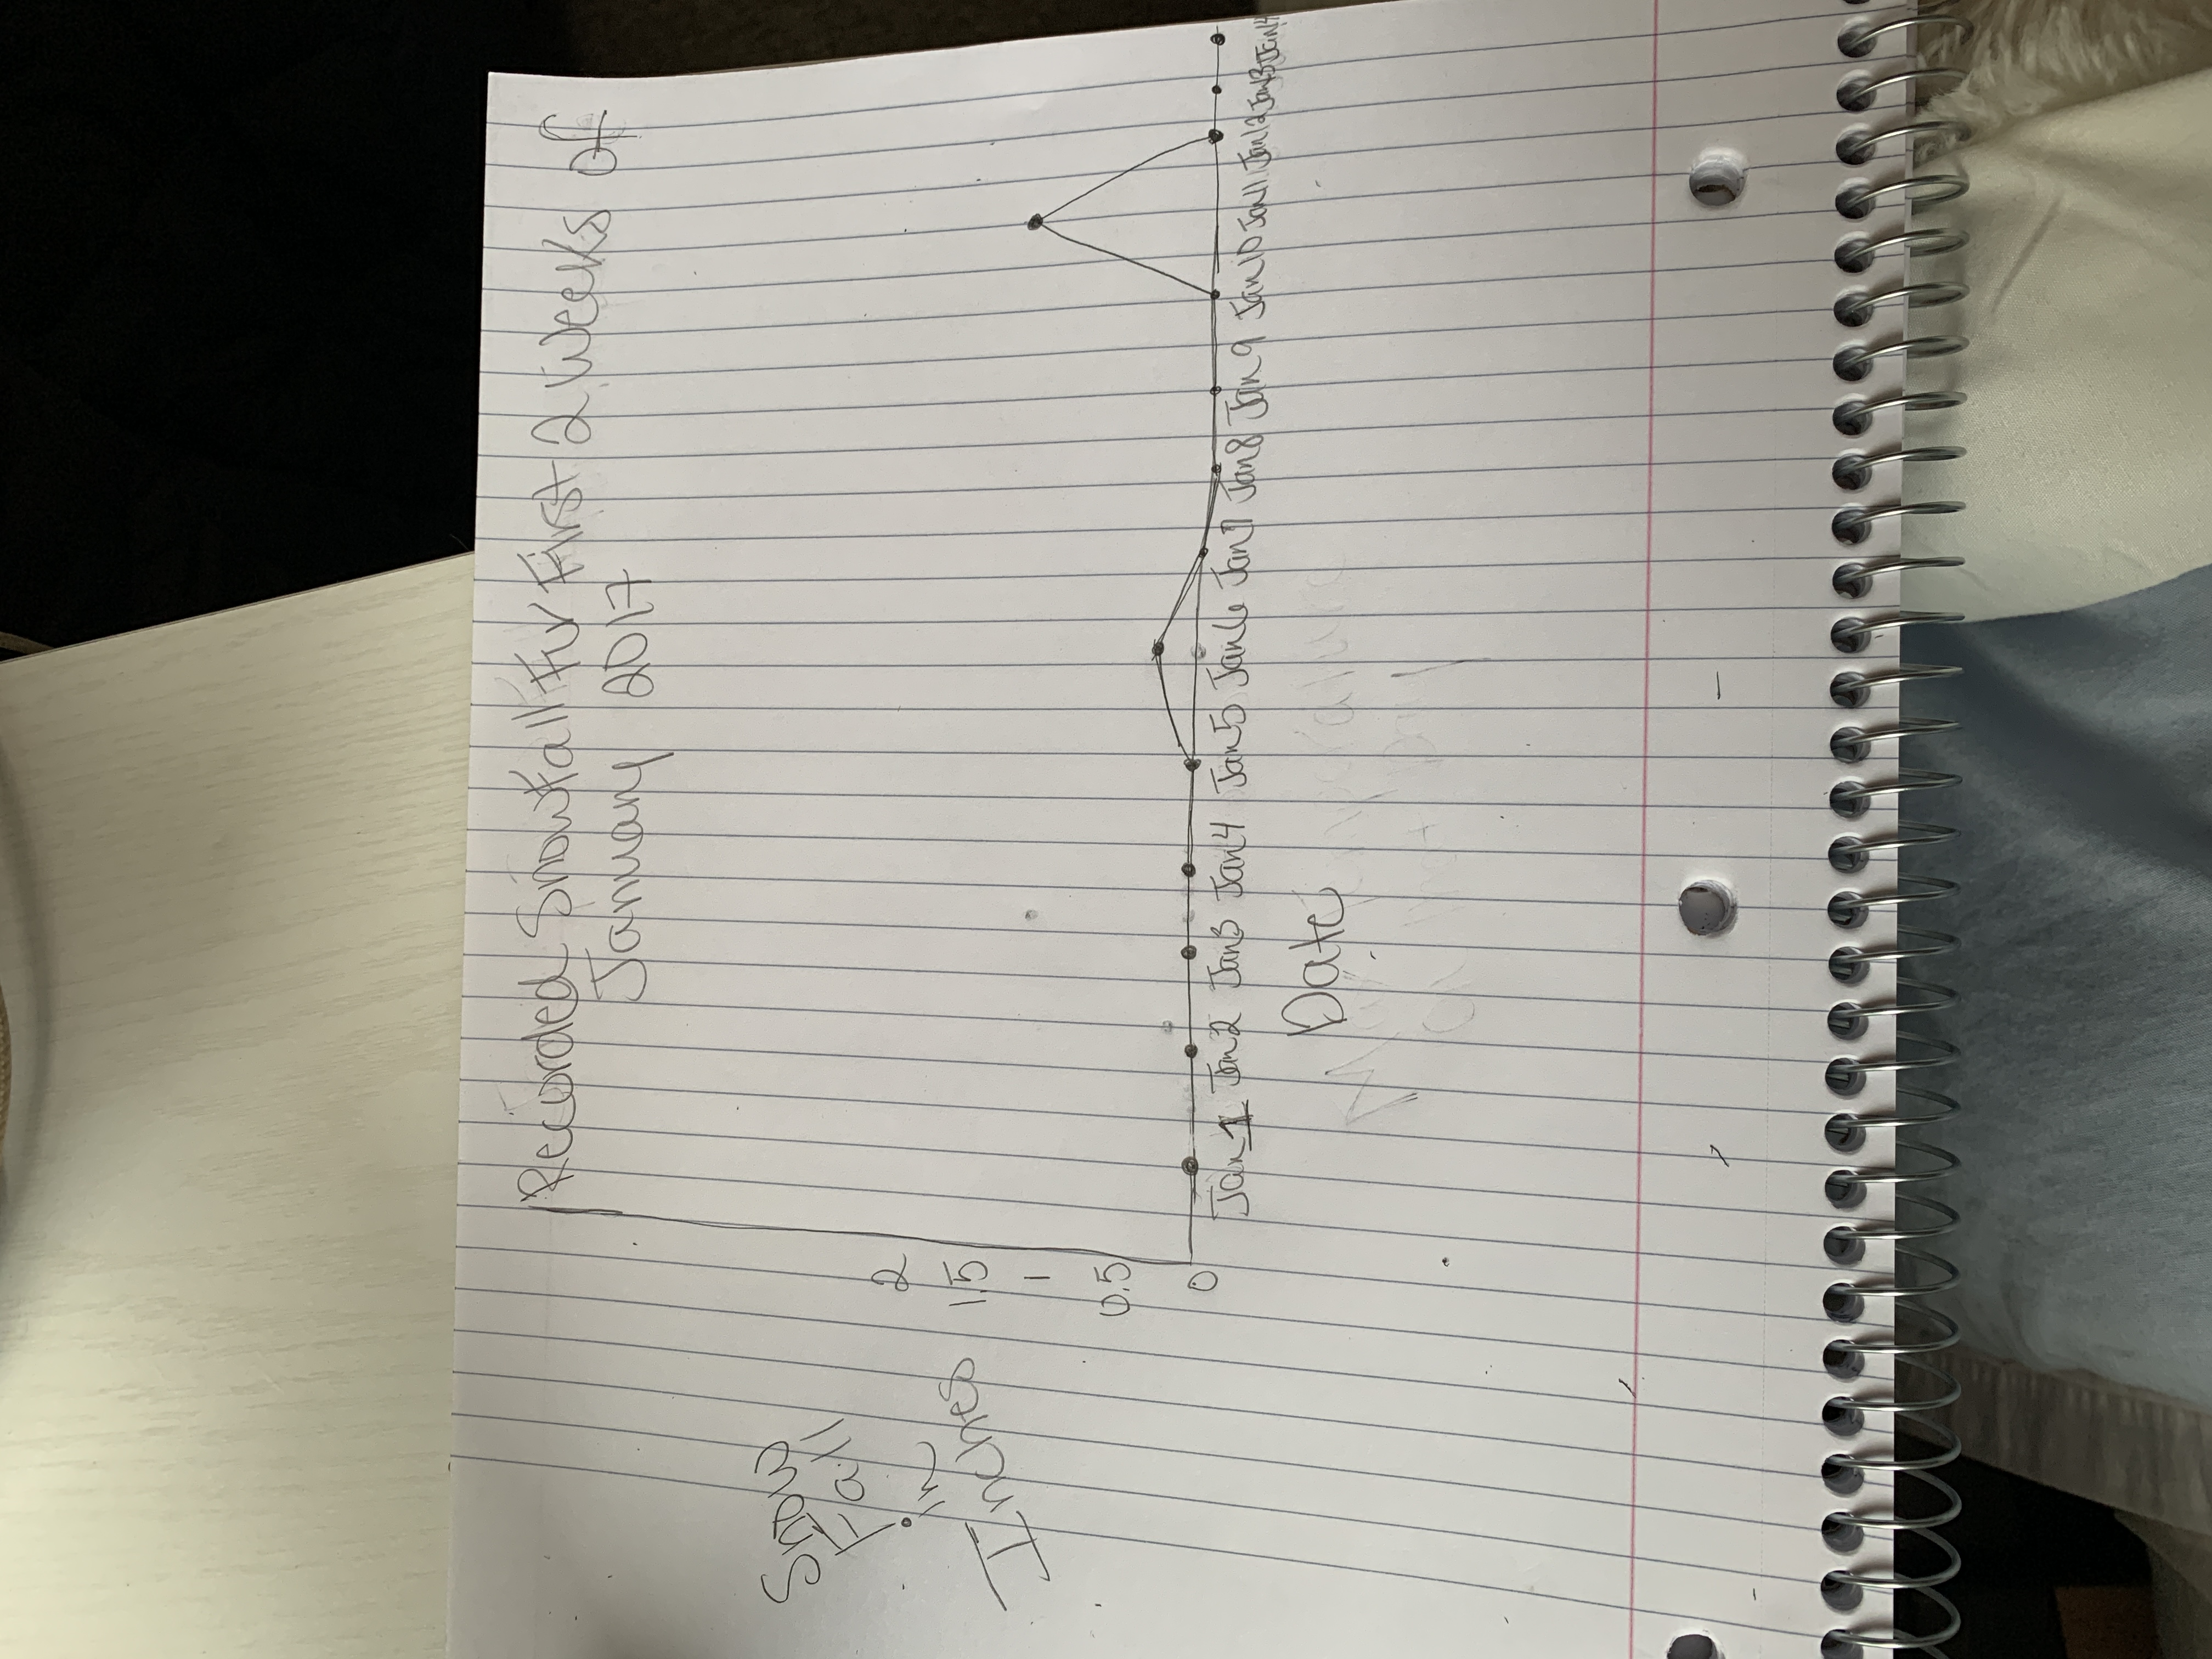 Recorded Snowfall Fur First 2 Weeks of
January 2017
Snow
Fall
in
Inches
2
1.5
1
0.5
0
Jan 1 Jan 2 Jan 3 Jan 4 Jan 5 Jan 6 Jan 7 Jan 8 Jan 9 Jan 10 Jan 11 Jan 12 Jan 13 Jan 14
Date
Max Temperature
on that Day